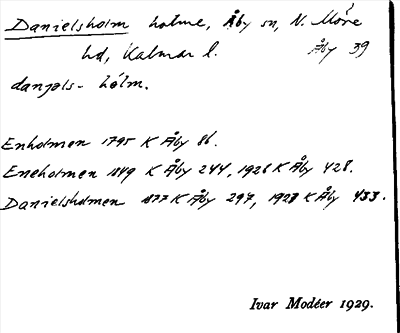 Danielsholm holme, Åby sn, N. Möre
hd, Kalmar l. Åby 39
danjəls- hólm.
Enholmen 1795 K Åby 86.
Eneholmen 1849 K Åby 244, 1926 K Åby 428.
Danielsholmen 1877 K Åby 297, 1928 K Åby 433.
Ivar Modéer 1929.